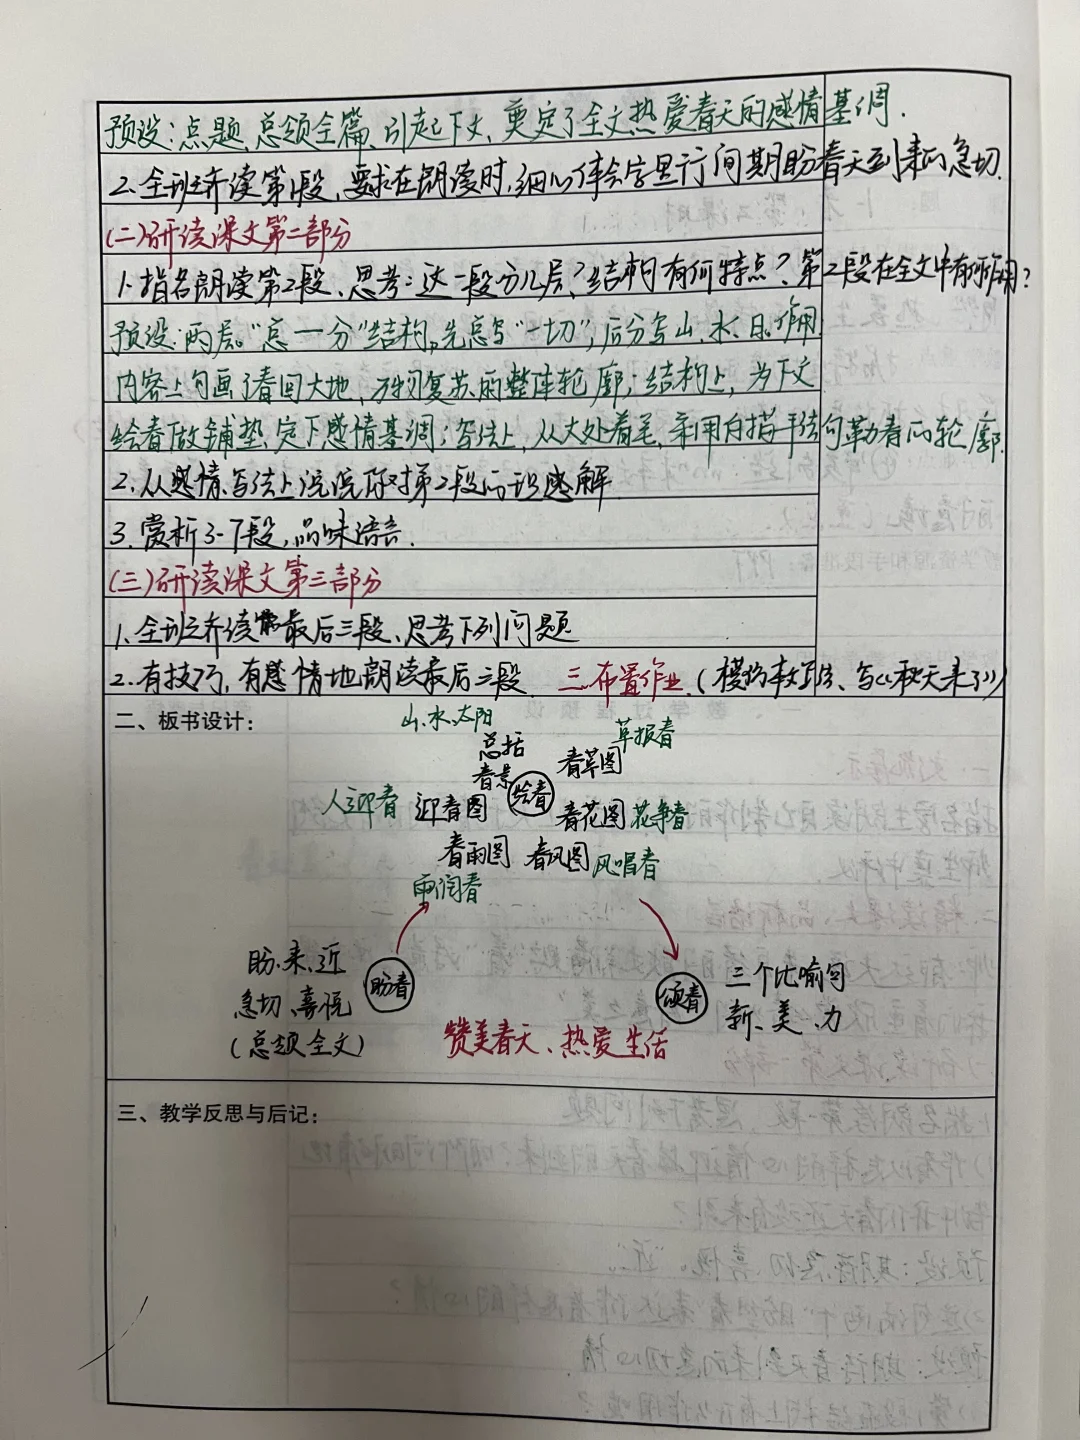 预设：点题、总领全篇、引起下文、奠定了全文热爱春天的感情基调.
2.全班齐读第1段、要求在朗读时,细心体会字里行间期盼春天到来的急切.
(二)研读课文第二部分
1.指名朗读第2段、思考:这一段分几层？结构有何特点？第2段在全文中有何作用？
预设:两层。"总一分"结构,先总写"一切",后分写山、水、日。作用
内容上勾画了春回大地,万物复苏的整体轮廓;结构上,为下文
绘春做铺垫,定下感情基调;写法上,从大处着笔,采用白描手法勾勒春的轮廓.
2.从感情、写法上说说你对第2段的
3.赏析3-7段,品味语言.
(三)研读课文第三部分
1.全班齐读最后三段、思考下列问题
2.有技巧,有感情地朗读最后三段. 三.布置作业.(模仿本文写法、写《秋天来了》)
二、板书设计：
山、水、太阳
总括 草报春
春景 绘春 春草图
人迎春 迎春图 春花图 花争春
春雨图 春风图 风唱春
雨润春
盼、来、近 盼春 颂春 三个比喻句
急切、喜悦 新、美、力
(总领全文) 赞美春天、热爱生活
三、教学反思与后记：